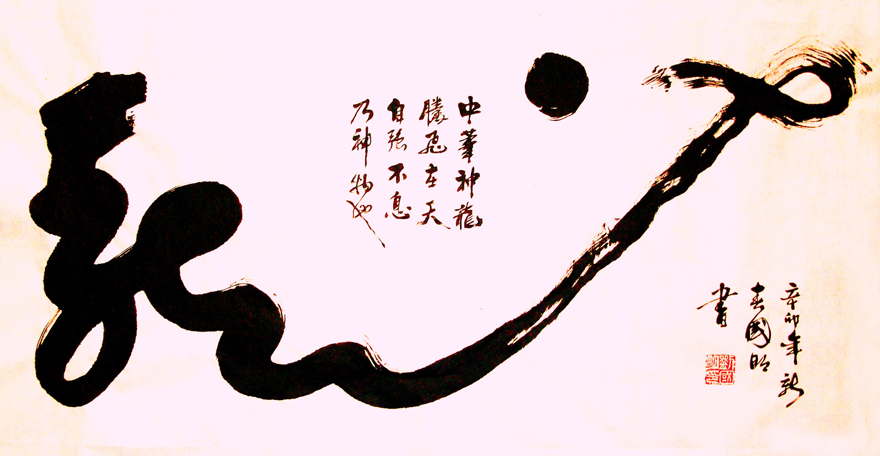 龍
中華神龍
騰飛在天
自強不息
乃神物也
辛卯年新
春國明
書